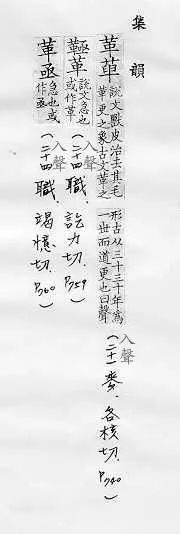 集韻
革𠦶 說文獸皮治去其毛革更之象古文革之形古从三十三十年爲一世而道更也臼聲
入聲
(二十一)麥、各核切. P740)
革 說文急也或作革
入聲
(二十四)職、訖力切. P759)
革亟 急也或作亟
入聲
(二十四)職、竭憶切. P760)